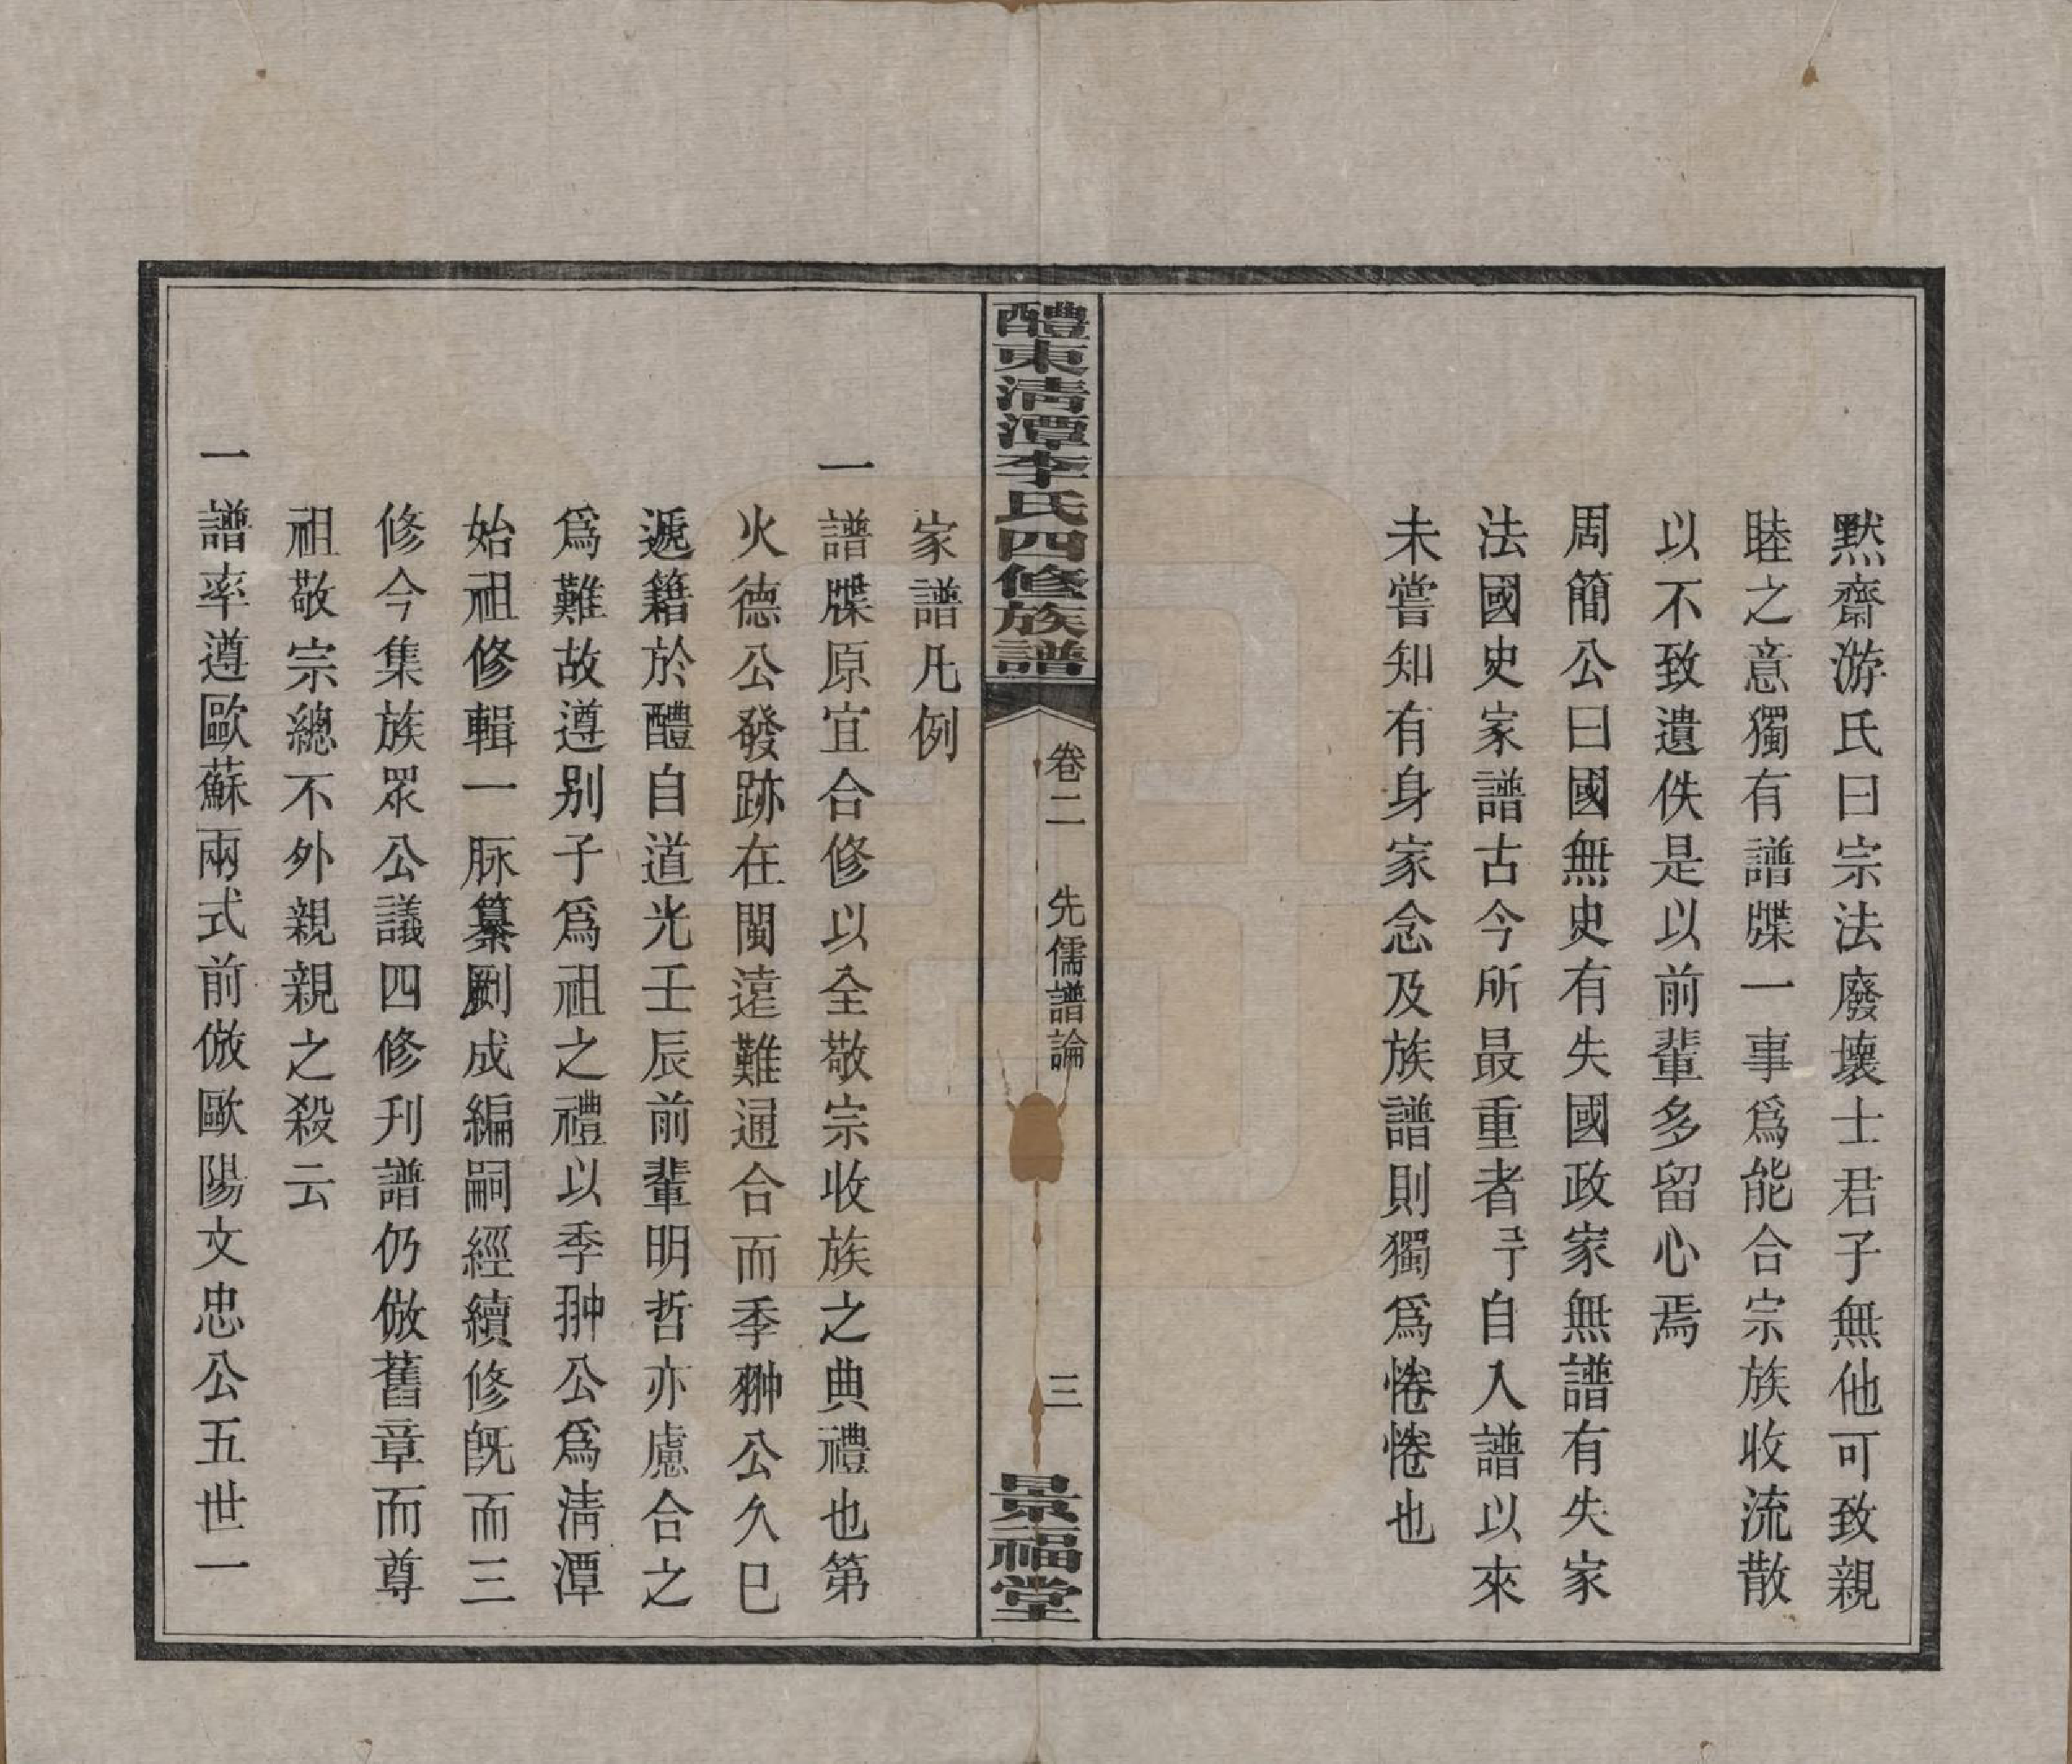 默齋游氏曰宗法廢壞士君子無他可致親
睦之意獨有譜牒一事爲能合宗族收流散
以不致遺佚是以前輩多留心焉
周簡公曰國無史有失國政家無譜有失家
法國史家譜古今所最重者予自入譜以來
未嘗知有身家念及族譜則獨爲惓惓也
醴東淸潭李氏四修族譜
卷二
先儒譜論
三
景福堂
家譜凡例
一譜牒原宜合修以全敬宗收族之典禮也第
火德公發跡在閩遠難通合而季翀公久已
遞籍於醴自道光壬辰前輩明哲亦慮合之
爲難故遵别子爲祖之禮以季翀公爲淸潭
始祖修輯一脉纂劂成編嗣經續修旣而三
修今集族眾公議四修刋譜仍倣舊章而尊
祖敬宗總不外親親之殺云
一譜率遵歐蘇兩式前倣歐陽文忠公五世一